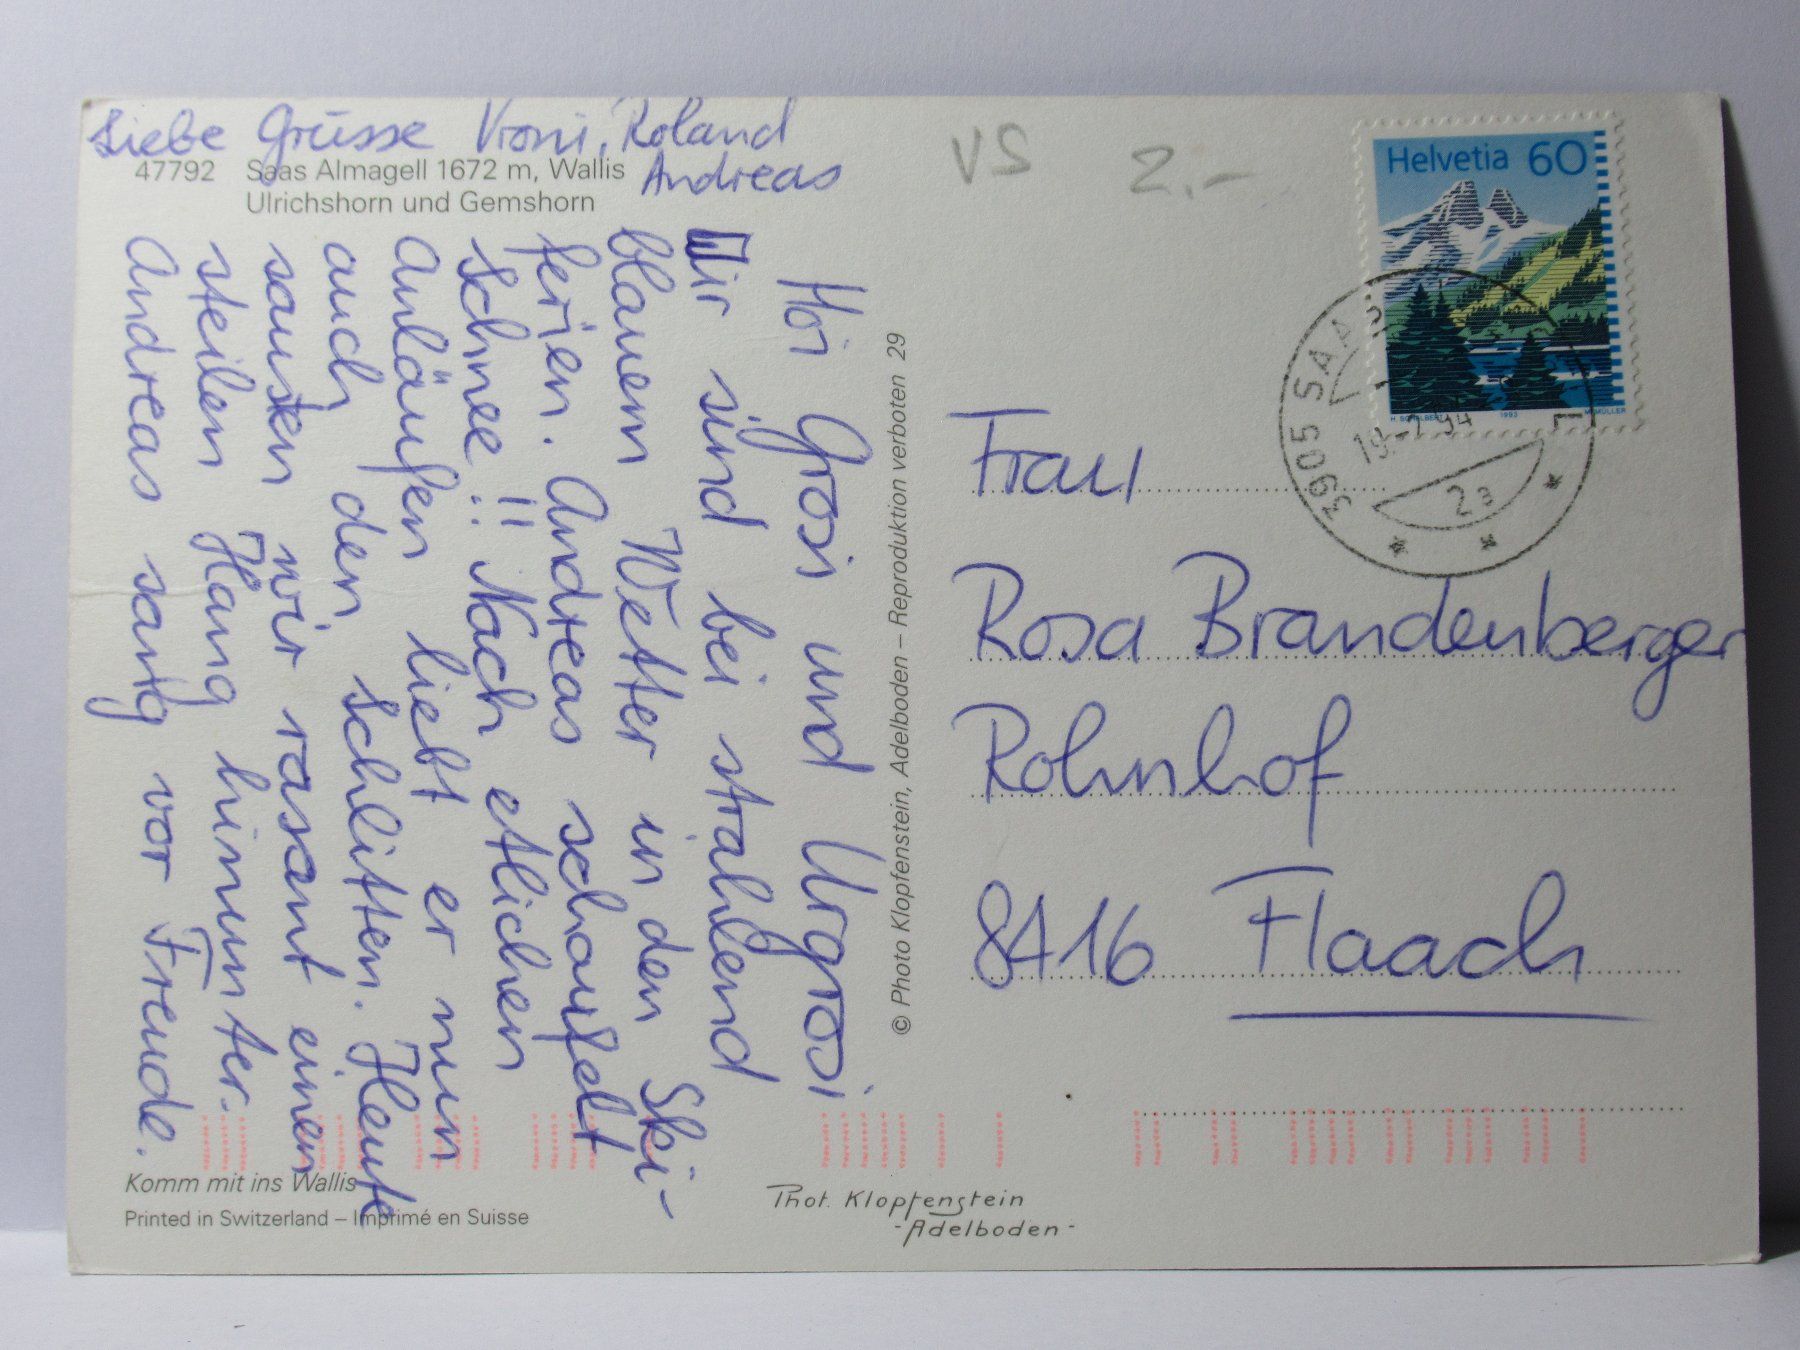 Liebe Grüsse Vroni, Roland
Andreas
47792 Saas Almagell 1672 m, Wallis
Ulrichshorn und Gemshorn
Hoi Grosi und Urgrosi
Wir sind bei strahlend
blauem Wetter in den Ski-
ferien. Andreas schaufelt
Schnee!! Nach etlichen
Anläufen liebt er nun
auch den Schlitten. Heute
sausten wir rasant einen
steilen Hang hinunter.
Andreas sang vor Freude.
Komm mit ins Wallis
Printed in Switzerland – Imprimé en Suisse
© Photo Klopfenstein, Adelboden – Reproduktion verboten 29
Phot. Klopfenstein
- Adelboden -
VS 2.-
Helvetia 60
1993
3905 SAA
23
Frau
Rosa Brandenberger
Rohnhof
8416 Flaach